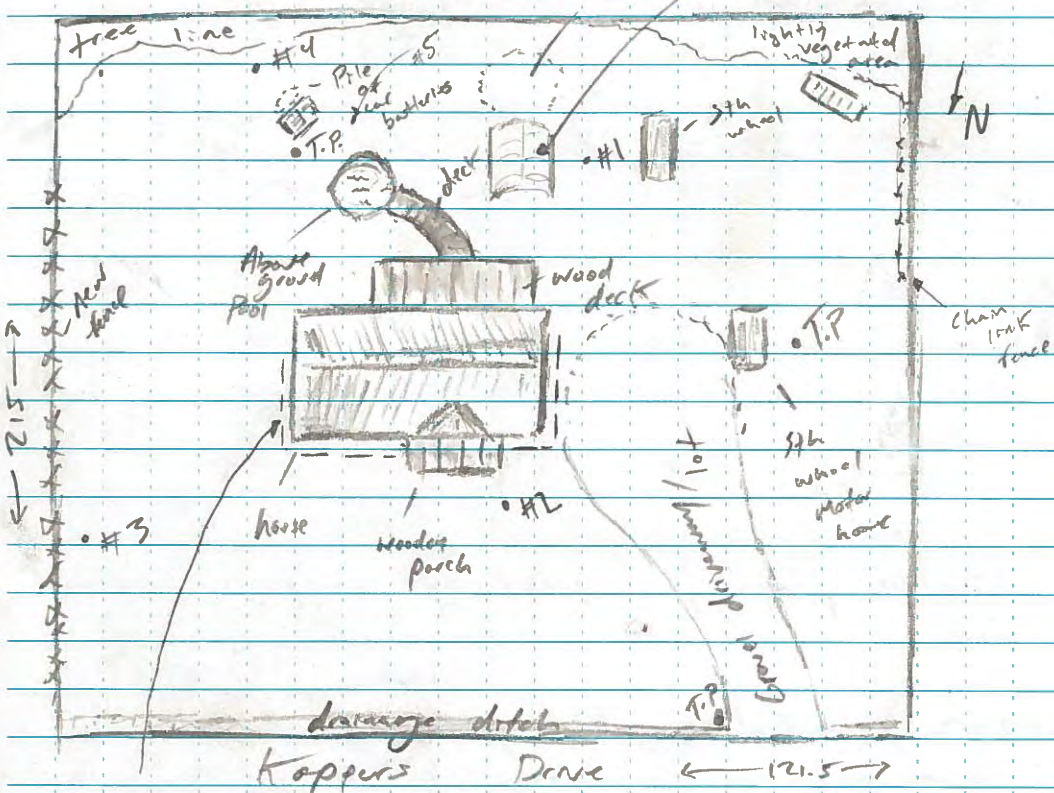 tree line
#4
#5
Pile
of
batteries
T.P.
deck
#1
5th
wheel
lightly
vegetated
area
N
Above
ground
pool
wood
deck
T.P
chain
link
fence
New
fence
215
5th
wheel
Motor
home
Gravel driveway / lot
#2
#3
house
wooden
porch
T.P.
drainage ditch
Koppers Drive
121.5